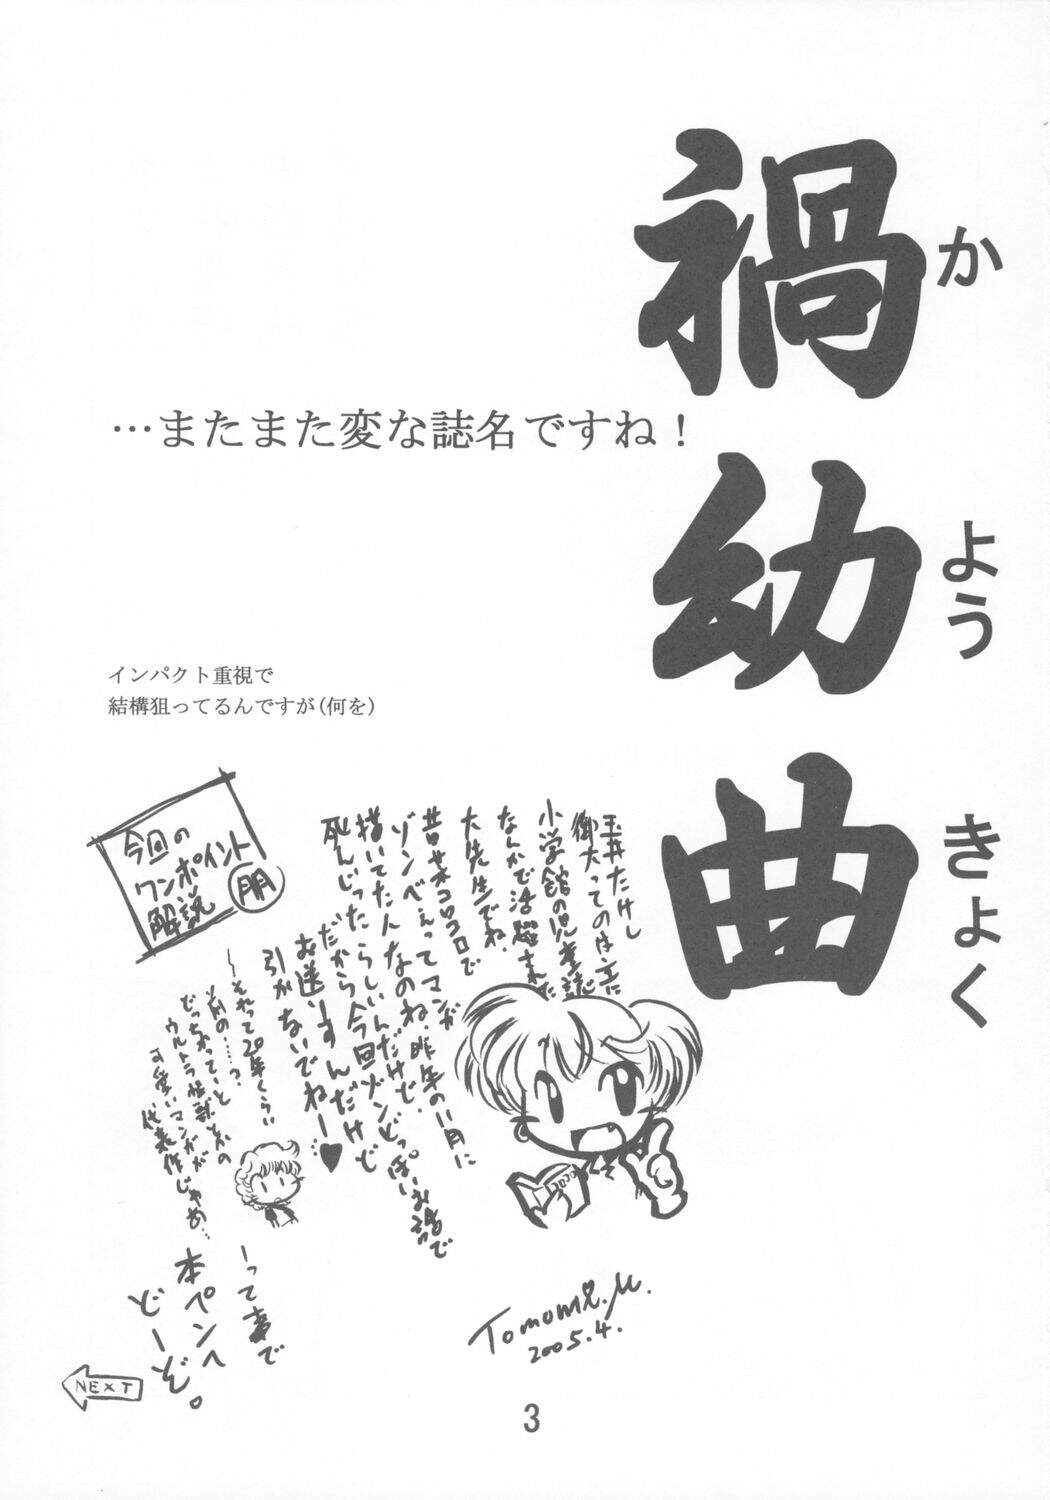 禍幼曲
か
よう
きょく
…またまた変な誌名ですね！
インパクト重視で
結構狙ってるんですが(何を)
今回の
ワンポイント
解説
朋
玉井たけし
御大ってのは主に
小学館の児童誌
なんかで活躍された
大先生でね
昔さぁコロコロで
ゾンべぇってマンガ
描いてた人なのね、昨年の11月に
死んじったらしいんだけど、
だから今回ゾンどっぽいお話で
お送りすんだけど
引かないでねー♥
～それって20年くらい
前の……？
どっちかってーと
ウルトラ怪獣とかの
可愛いマンガが
代表作じゃぁ…
コロコロ
ーって事で
本ペンへ
どーぞ。
Tomomi.M.
2005.4.
NEXT
3